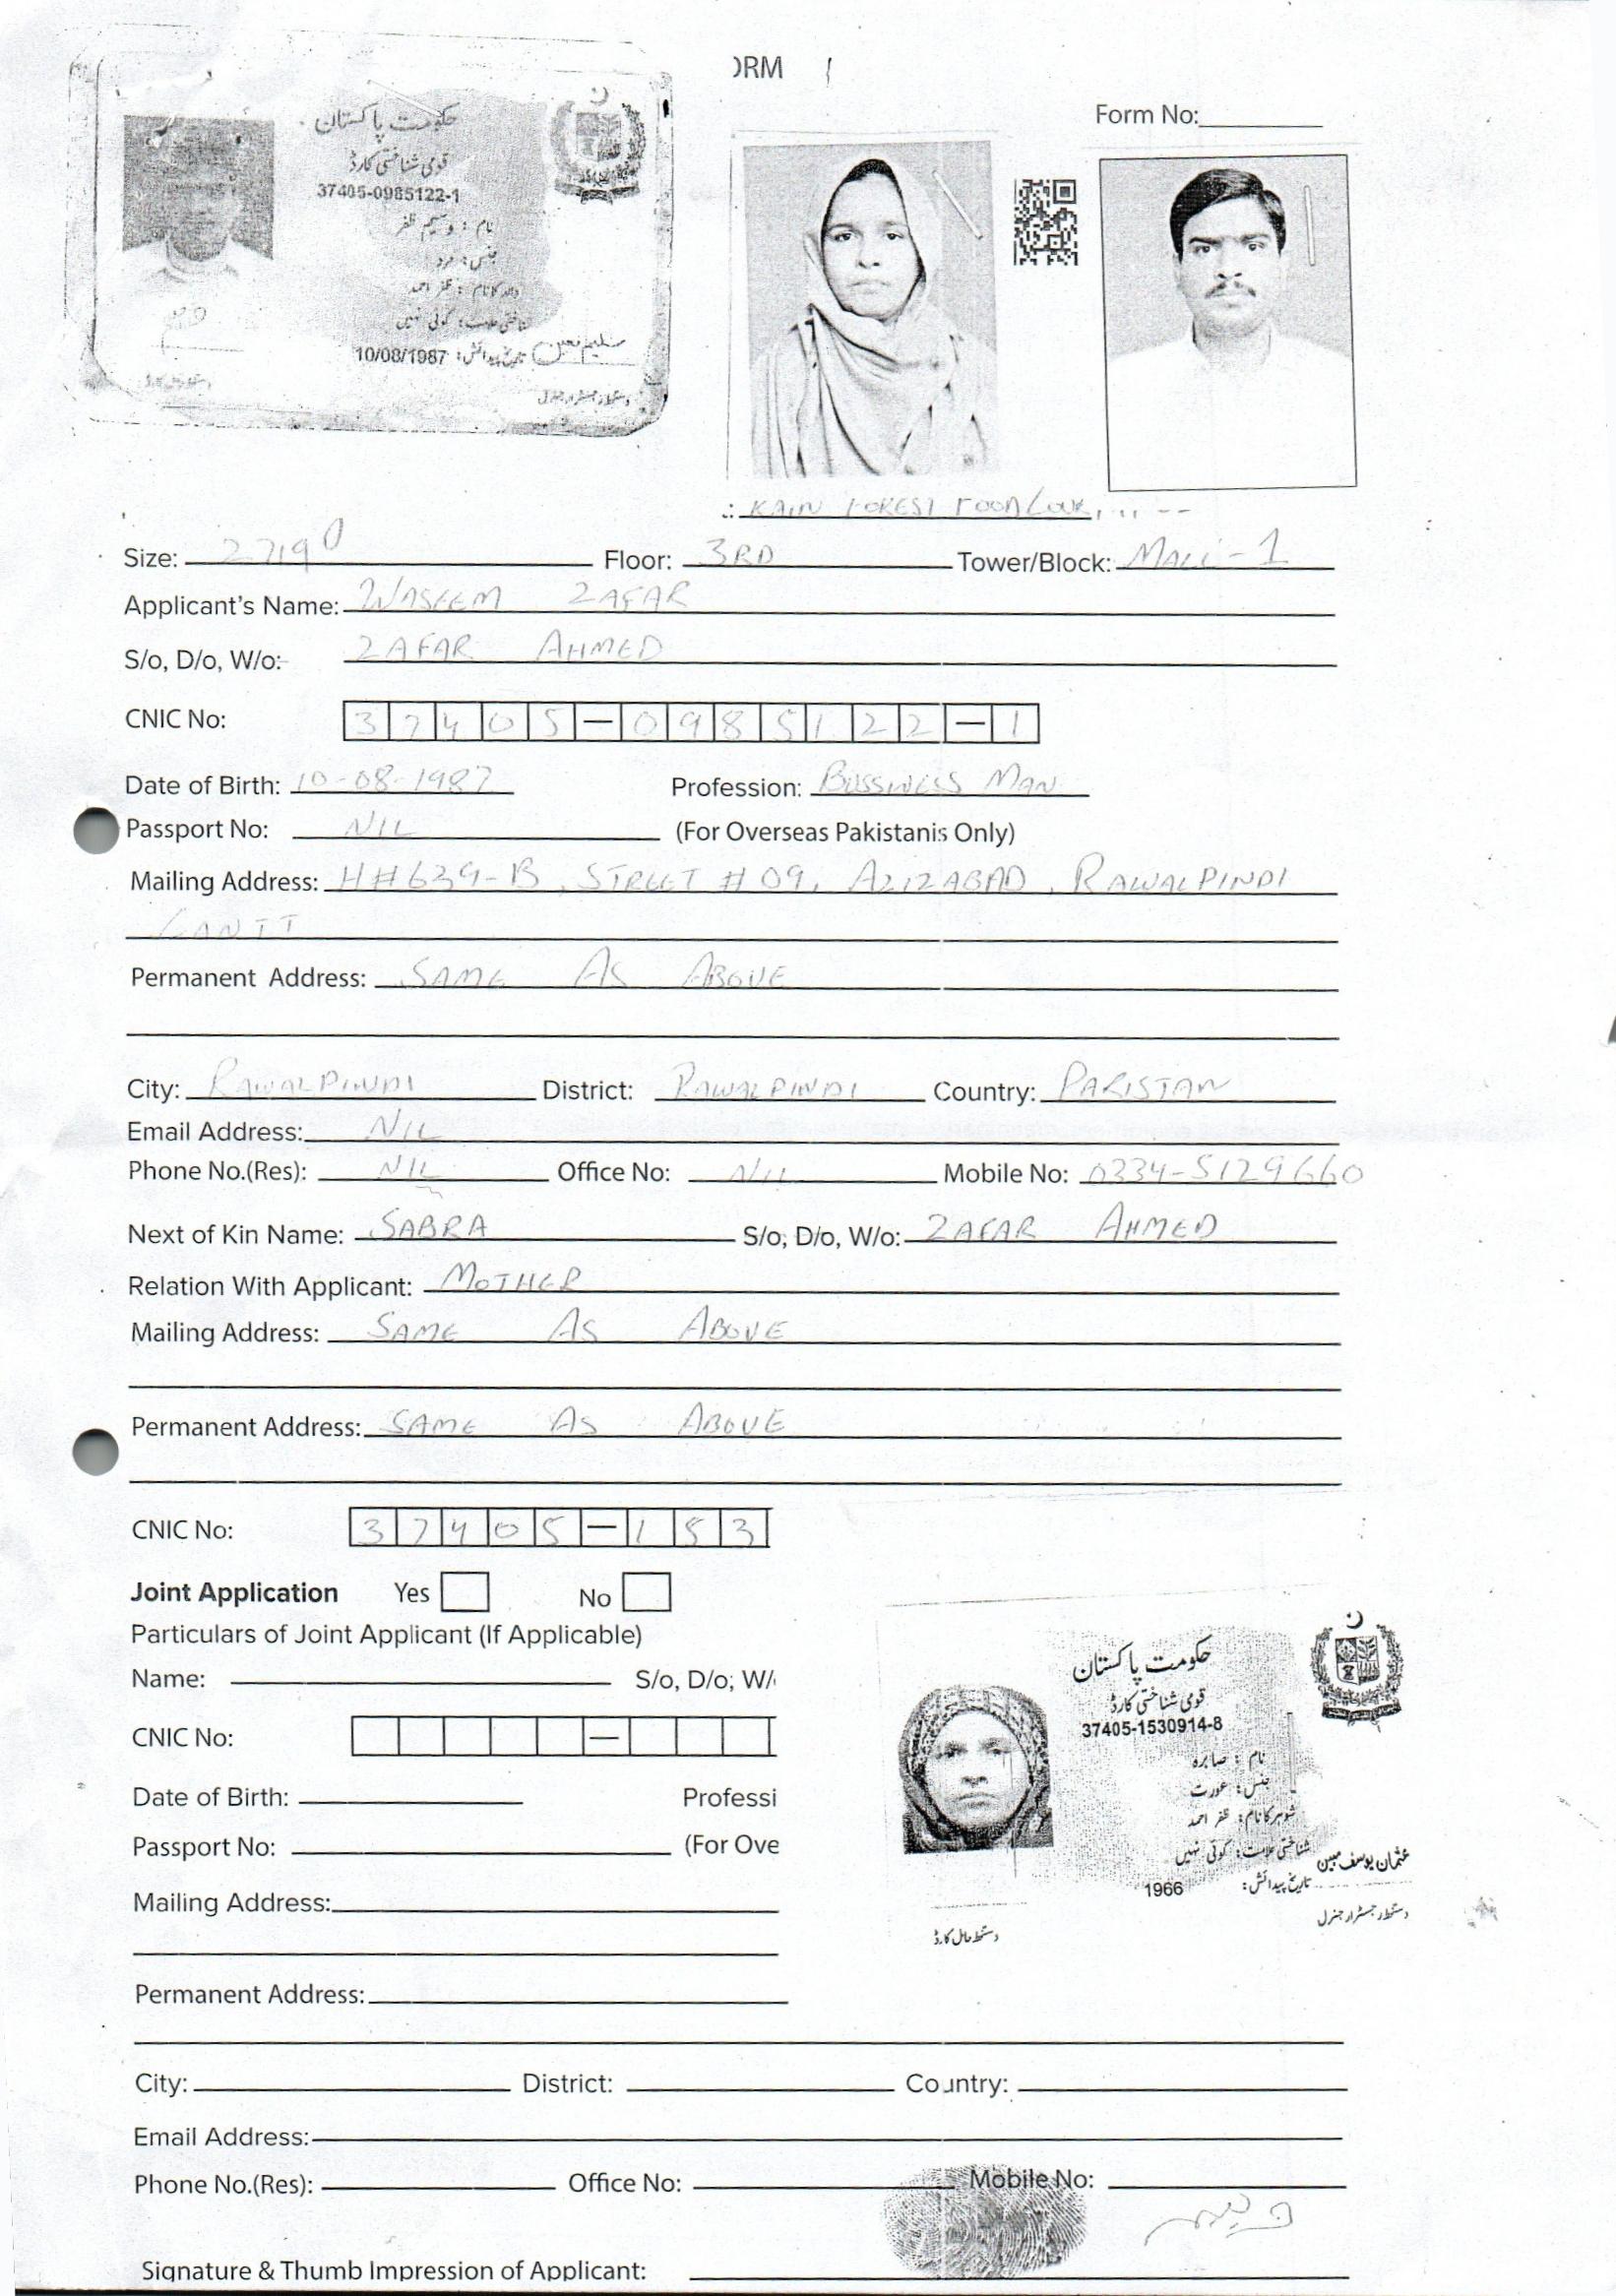 ORM
Form No:
حکومت پاکستان
قومی شناختی کارڈ
37405-0985122-1
نام : وسیم ظفر
جنس: مرد
والد کا نام : ظفر احمد
شناختی علامت: کوئی نہیں
تاریخ پیدائش: 10/08/1987
دستخط رجسٹرار جنرل
FOREST
Size: Floor: 3RD Tower/Block: MALL-1
Applicant's Name: WASEEM ZAFAR
S/o, D/o, W/o: ZAFAR AHMED
CNIC No: 37405-0985122-1
Date of Birth: 10-08-1987 Profession: BUSSINESS MAN
Passport No: NIL (For Overseas Pakistanis Only)
Mailing Address: H#639-B, STREET #09, AZIZABAD, RAWALPINDI
CANTT
Permanent Address: SAME AS ABOVE
City: RAWALPINDI District: RAWALPINDI Country: PAKISTAN
Email Address: NIL
Phone No.(Res): NIL Office No: NIL Mobile No: 0334-5129660
Next of Kin Name: SABRA S/o, D/o, W/o: ZAFAR AHMED
Relation With Applicant: MOTHER
Mailing Address: SAME AS ABOVE
Permanent Address: SAME AS ABOVE
CNIC No: 37405-153
Joint Application Yes No
Particulars of Joint Applicant (If Applicable)
Name: S/o, D/o, W/
CNIC No: -
Date of Birth: Professi
Passport No: (For Ove
Mailing Address:
Permanent Address:
حکومت پاکستان
قومی شناختی کارڈ
37405-1530914-8
نام : صابرہ
جنس: عورت
شوہر کا نام: ظفر احمد
شناختی علامت: کوئی نہیں
عثمان یوسف مبین
تاریخ پیدائش: 1966
دستخط رجسٹرار جنرل
دستخط حامل کارڈ
City: District: Country:
Email Address:
Phone No.(Res): Office No: Mobile No:
Signature & Thumb Impression of Applicant: